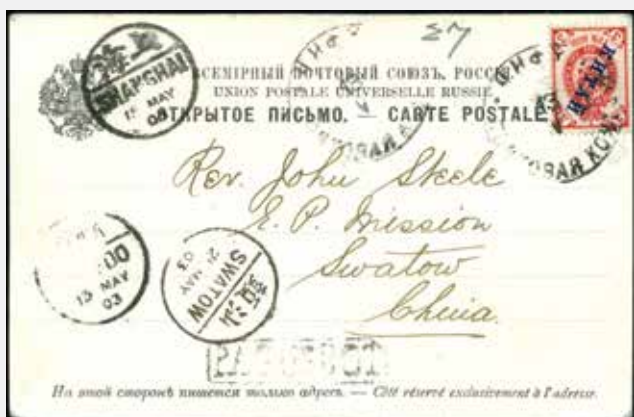 27
ВСЕМІРНЫЙ ПОЧТОВЫЙ СОЮЗЪ. РОССІЯ.
UNION POSTALE UNIVERSELLE RUSSIE.
ОТКРЫТОЕ ПИСЬМО. — CARTE POSTALE
КИТАЙ
上海
SHANGHAI
MAY
03
Rev. John Steele
E. P. Mission
Swatow
China
13 MAY
03
SWATOW
MAY
03
PAQUEBOT
На этой сторонѣ пишется только адресъ. — Côté réservé exclusivement à l'adresse.